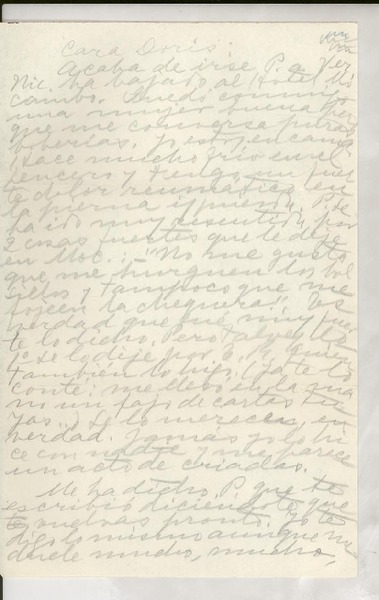 Cara Doris:
Acaba de irse P. a Ver
Nic. ha bajado al Hotel Mo
cambo. Quedó conmigo
una mujer buena per
que me conversa puras
boberías. Yo estoy en cama
Hace mucho frio en el
Lencero y tengo un fuer
te dolor reumático en
la pierna izquierda. P. se
ha ido muy resentida por
2 cosas fuertes que le dije
en Moc.: -"No me gusta
que me hurguen los bol
sillos y tampoco que me
hojeen la chequera". Es
verdad que fué muy fuer
te lo dicho. Pero
1° Se lo dije por
también lo hizo. (Ya te lo
conté: me llevó en la ma
no un fajo de cartas tu
yas.) Se lo merecen, en
verdad. Jamás yo lo hi
ce con nadie y me parece
un acto de criadas.
Me ha dicho P. que te
escribió diciéndote que
vuelvas pronto. Yo te
digo lo mismo aunque me
duele mucho, mucho,